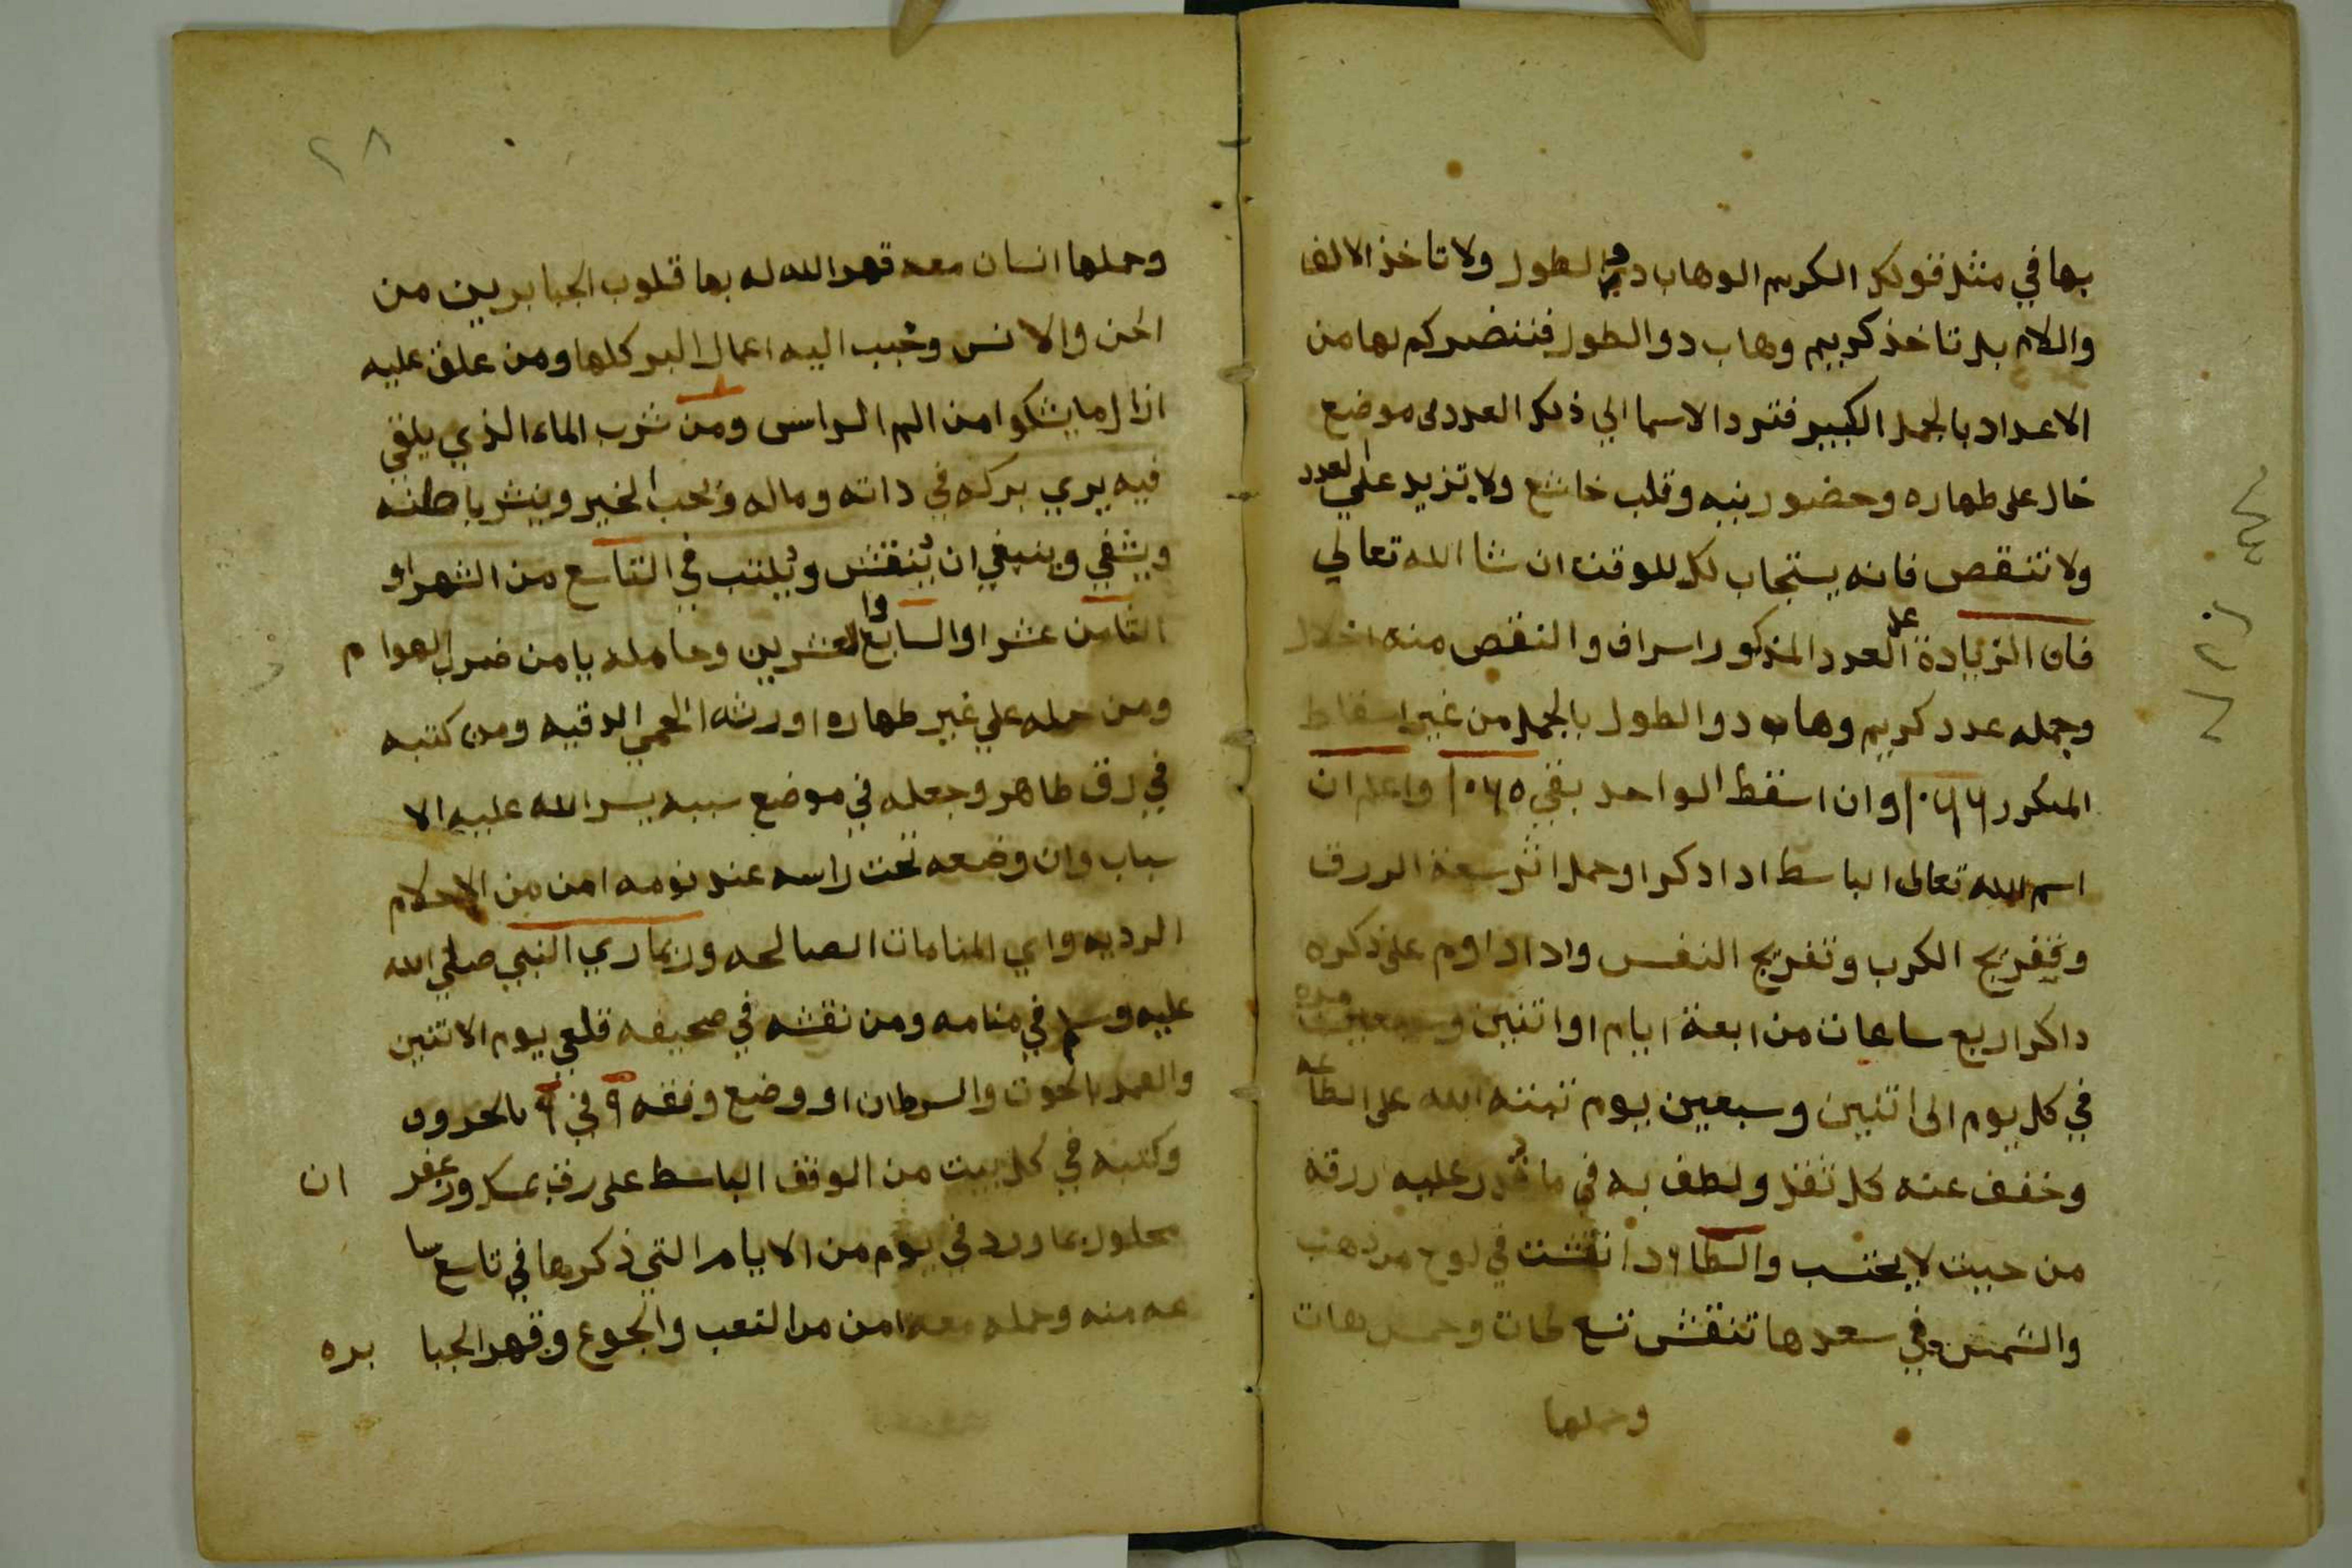 بها في مثل قولك الكريم الوهاب دو الطول ولا تاخذ الالف
والام بل تاخذ كريم وهاب دوالطول فتنضركم لها من
الاعداد بالجمل الكبير فترد الاسما الي ذلك العدد في موضع
خال على طهاره وحضور بنيه وقلب خاشع ولا تزيد علي العدد
ولا تنقص فانه يستجاب لك للوقت ان شا الله تعالي
فان الزيادة على العدد المذكور اسراف والنقص منه اخلال
وجمله عدد كريم وهاب دوالطول بالجمل من غير اسقاط
المكرر ١٠٦٦ وان اسقط الواحد بقي ١٠٦٥ واعلم ان
اسم الله تعالى الباسط ادا دكر او حمل اثر سعة الررق
وتفريج الكرب وتفريج النفس وادا داوم على ذكره
داكر اربع ساعات من ابعة ايام او اتنين وسبعين مره
في كل يوم الى اتنين وسبعين يوم تبته الله على الطاعه
وخفف عنه كل ثقل ولطف به في ما قدر عليه اررقه
من حيت لا يحتسب والطا ادا نقشت في لوح من ذهب
والشمس في سعدها تنقش تسع طات وخمس هات
وحملها
٢٨
وحملها انسان معه قهر الله له بها قلوب الجبابرين من
الجن والانس وحبب اليه اعمال البر كلها ومن علق عليه
ازال ما يشكوا من الم الراس ومن شرب الماء الذي يلقي
فيه يري بركه في داته وماله وحب الخير وينشر باطنه
ويشفي وينبغي ان ينقش ويكتب في التاسع من الشهر او
التامن عشر او السابع والعشرين وحامله يامن ضرر الهوام
ومن حمله علي غير طهاره اورثه الحمي الدقيه ومن كتبه
في رق طاهر وجعله في موضع سببه يسر الله عليه الا
سباب وان وضعه تحت راسه عند نومه امن من الاحلام
الرديه واي المنامات الصالحه وربما ري النبي صلي الله
عليه وسلم في منامه ومن نقشه في صحيفه قلعي يوم الاتنين
والقمر بالحوت والسرطان او وضع وفقه ٩ في ٩ بالحروف
وكتبه في كل بيت من الوفق الباسط على رق بمسك وزعفر ان
محلول بما ورد في يوم من الايام التي ذكرها في تاسع سا
عه منه وحمله معه امن من التعب والجوع وقهر الجبا بره